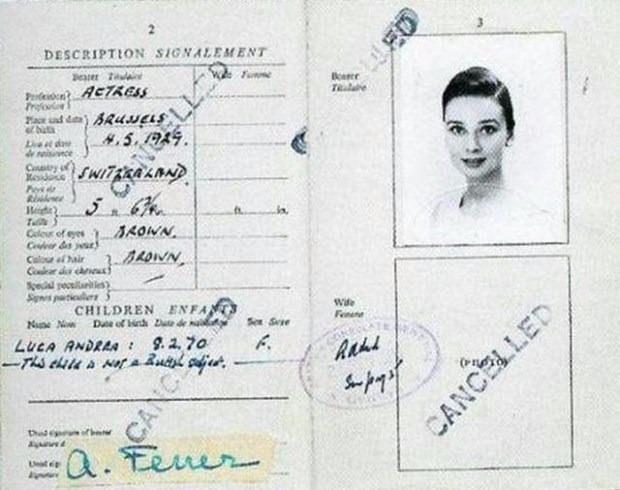 2
DESCRIPTION SIGNALEMENT
Bearer Titulaire Wife Femme
Profession ACTRESS
Profession
Place and date of birth BRUSSELS
Lieu et date de naissance 4.5.1929.
Country of Residence SWITZERLAND
Pays de Résidence
Height 5 ft. 6¾ in. ft. in.
Taille
Colour of eyes BROWN.
Couleur des yeux
Colour of hair BROWN.
Couleur des cheveux
Special peculiarities
Signes particuliers
CHILDREN ENFANTS
Name Nom Date of birth Date de naissance Sex Sexe
LUCA ANDREA : 8.2.70 F.
This child is not a British subject.
Usual signature of bearer
Signature d
Usual sig
Signature
A. Ferrer
CANCELLED
CANCELLED
3
Bearer
Titulaire
Wife
Femme
(PHOTO)
CANCELLED